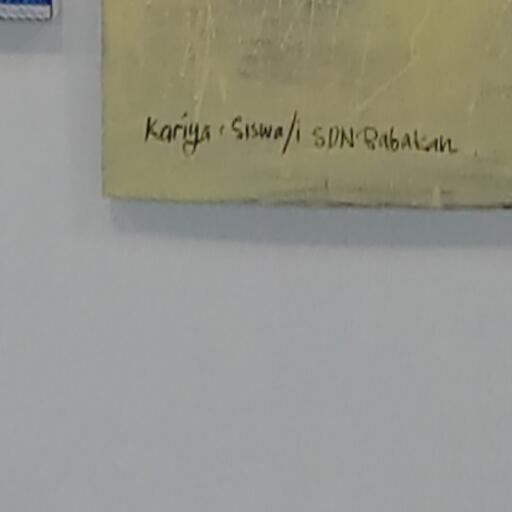 Kariya : Siswa/i SDN Babakan